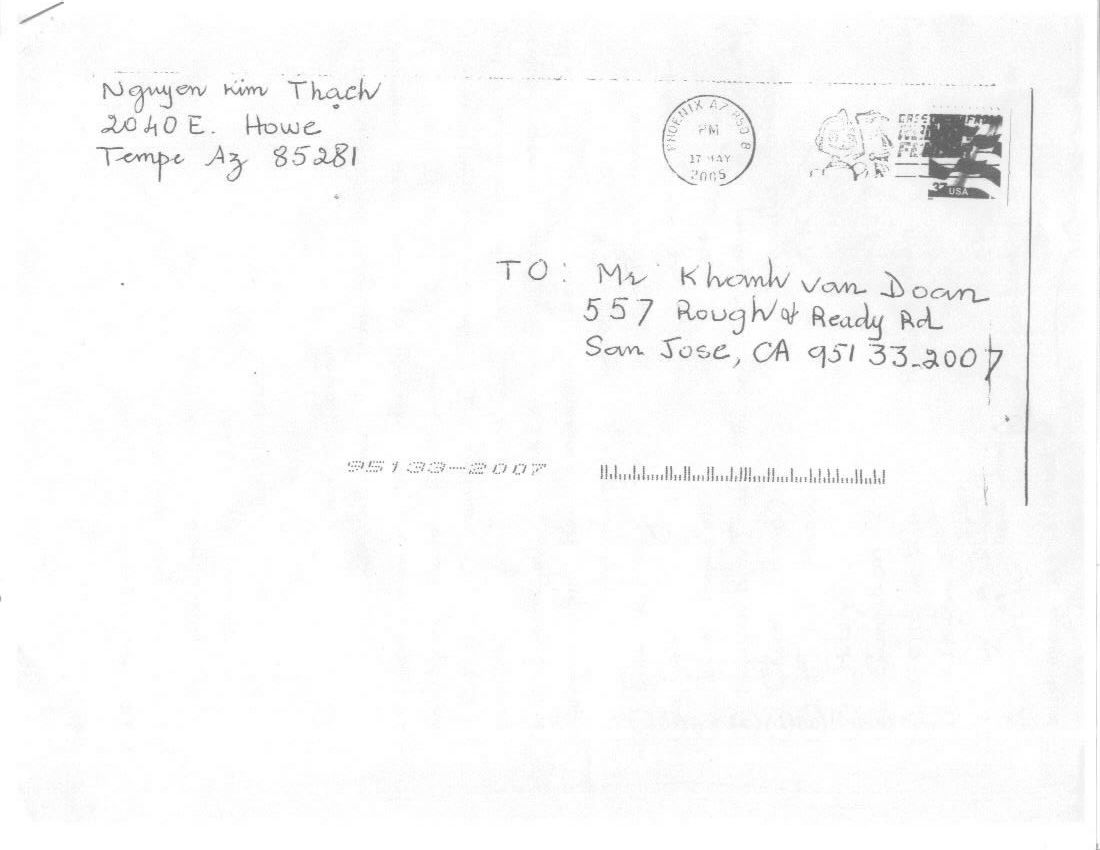 Nguyen Kim Thạch
2040 E. Howe
Tempe Az 85281
PHOENIX AZ 850
PM
17 MAY
2005
37 USA
TO: Mr Khanh Van Doan
557 Rough & Ready Rd
San Jose, CA 95133-2007
95133-2007